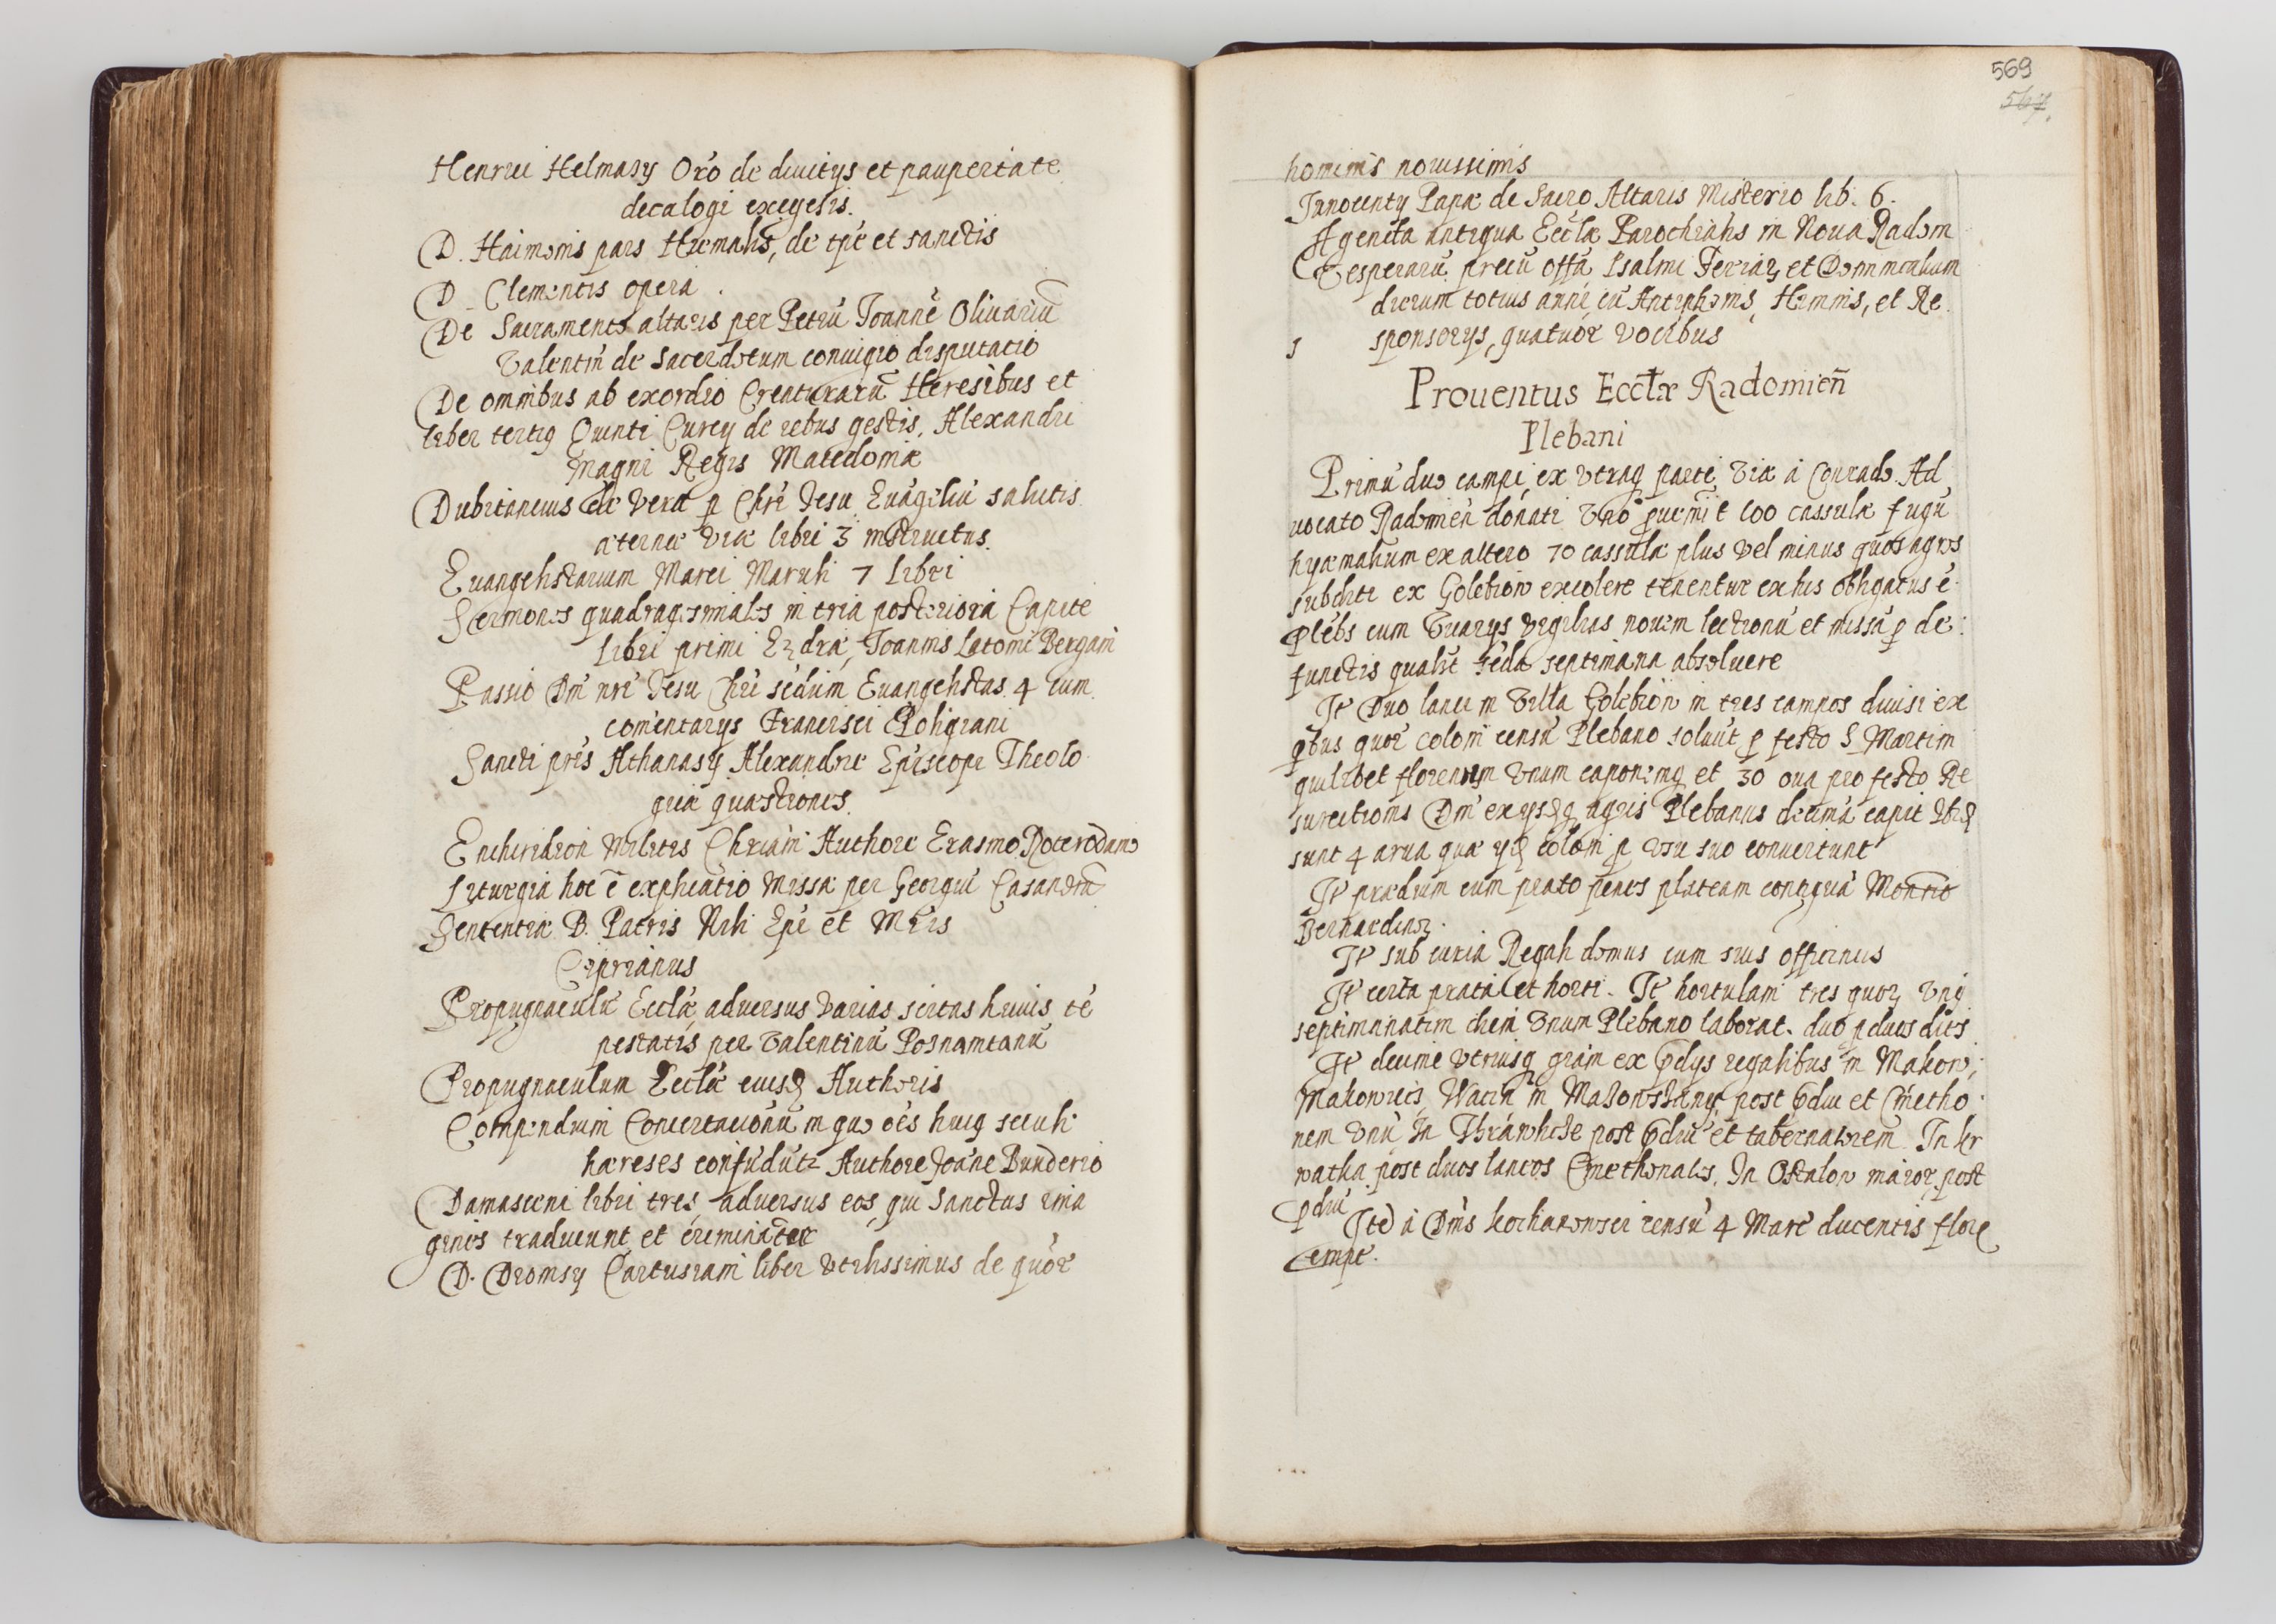 Henrici Helmasy Orõ de diuitys et paupertate
decalogi exegesis.
D. Haimonis pars Hiemalis, de tp̃e et sanctis
D. Clementis opera.
De Sacramento altaris per Petrũ Joannẽ Oliuariũ
Valentiñ de Sacerdotum coniugio disputatio
De omnibus ab exordio Creaturarũ Heresibus et
liber tertiꝯ Quinti Curcy de rebus gestis, Alexandri
magni Regis Macedoniæ
Dubitantius de vera ꝑ Chrũ Jesu Euãgeliũ salutis
æternæ via libri 3 instructus.
Euangelistarium Marci Maruli 7 libri
Sermones quadragesimales in tria posteriora Capite
libri primi Ezdræ, Joannis Latomi Bergañ
Passio Dñi nr̃i Jesu Chr̃i sẽdum Euangelistas. 4 cum
comẽntarys Francisci Poligrani
Sancti pr̃is Athanasy Alexandriæ Episcopi Theolo
giæ quæstiones.
Enchiridion Militis Chr̃iani Authore Erasmo Roterodamo
Liturgia hoc ẽ explicatio Missæ per Georgiũ Casandrũ
Sententiæ B. Patris Nili Ep̃i et Mr̃is
Ciprianus
Propugnaculũ Ecclæ, adversus varias sectas huius tẽ
pestatis, per Valentinũ Posnamtanũ
Propugnaculum Ecclæ eiusꝗ Authoris
Compendium Concertationũ in quo oẽs huiꝯ seculi
hæreses confũdũtꝛ Authore Joãne Bunderio
Damasceni libri tres, adversus eos, qui Sanctas ima
gines traducunt et criminãtur
D. Dionisy Cartusiani liber vtilissimus de quõr
569
567.
hominis nouissimis
Innocenty Papæ de Sacro Altaris Misterio lib. 6.
Agenda antiqua Eccłæ Parochialis in Noua Radom
Vesperarũ precũ offã Psalmi Feriaꝝ et Dominicalium
dierum totius anni, cũ Antiphonis, Himnis, et Re
sponsorys, quatuor vocibus
Prouentus Eccłæ Radomien̄
Plebani
Primũ duo campi, ex vtraꝗ parte, viæ à Conrado Ad
uocato Radomieñ donati. Vno pueñit 100 cassulæ fugũ
hyæmalium ex altero 70 cassulæ plus vel minus quos agros
subditi ex Golębiow excolere tenentur ex his obligatus ẽ
Plebs cum Vicarys vigilias nouem lectionũ et missã ꝑ de:
functis qualit feda septimana absoluere
Jt Duo lanei in Villa Golębiow in tres campos diuisi ex
ꝗbus quor coloni censũ Plebano soluũt ꝑ festo S Martini
quilibet florenum vnum caponemꝗ et 30 oua pro festo Re
surectionis Dñi ex ysꝗ agris Plebanus decimã capit Ibiꝗ
sunt 4 arua quæ yꝗ coloni ꝑ vsu suo conuertunt
Jt prædium cum prato penes plateam contiguã Montio
Bernardinoꝝ.
Jt sub curia Regali domus cum suis officinis
Jt certa prata et horti. Jt hortulani tres quoꝝ vnꝯ
septimanatim diem vnum Plebano laborat. duo ꝑ duos dies
Jt decimæ vtriusꝗ grani ex prædys regalibus in Makow,
Makowiecz, Wacin in Mazowszany, post prædiũ et Cmetho
nem vnũ In Thrawlicze post prædiũ et tabernatorem. In kr
watka post duos laneos Cmethonales. In Ostalow maior post
prædiũ
Itẽ à Dñis kochanowsci censũ 4 Marc ducentis flore
empt.